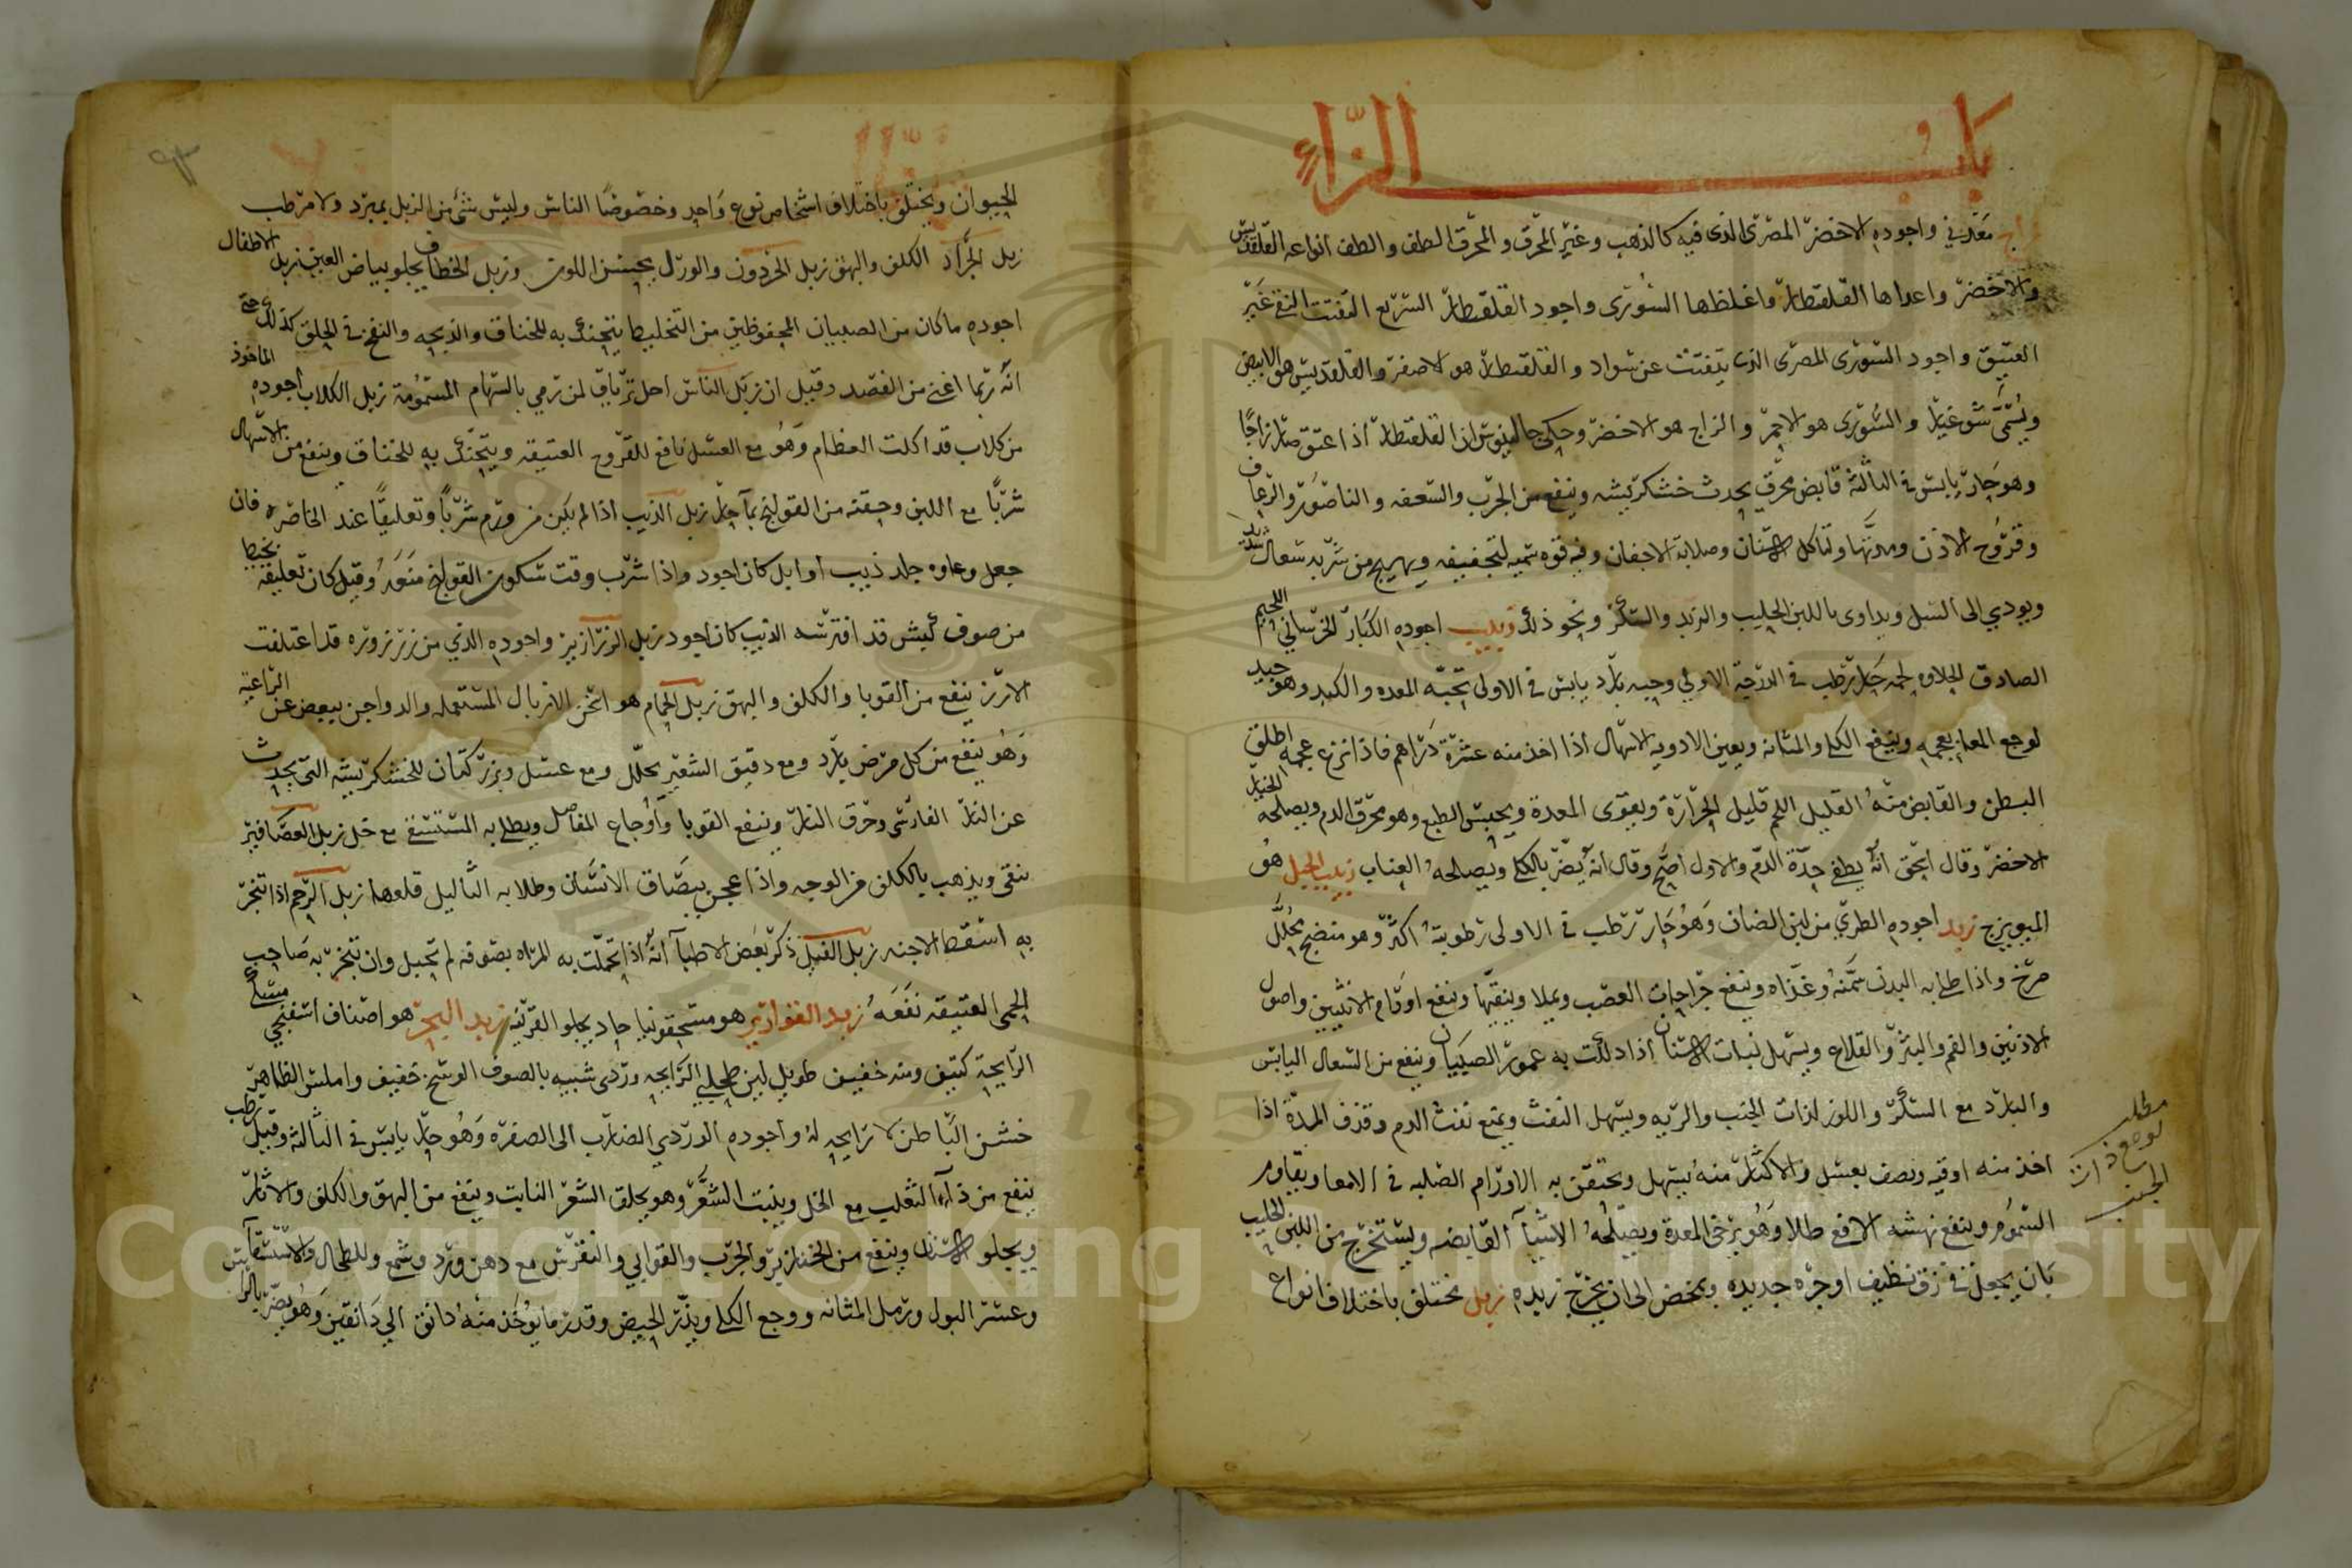 باب الزاء
زاج معدني واجوده الاخضر المصري الذي فيه كالذهب وغير المحرق والمحرق الطف والطف انواعه القلقديس
والاخضر واعدلها القلقطار واغلظها السوري واجود القلقطار السريع التفتت النقي غير
العتيق واجود السوري المصري الذي يتفتت عن سواد والقلقطار هو الاصفر والقلقديس هو الابيض
ويسمى والسوري هو الاحمر والزاج هو الاخضر وحكى جالينوس ان القلقطار اذا اعتق صار زاجا
وهو حار يابس في الثالثة قابض محرق يحدث خشكريشه وينفع من الجرب والسعفه والناصور والرعاف
وقروح الاذن ومدتها ولتاكل الاسنان وصلابة الاجفان وفيه قوه سميه لتجفيفه ويهيج من شربه سعال شديد
ويودي الى السل ويداوى باللبن الحليب والزبد والسكر ونحو ذلك زبيب اجوده الكبار الخرساني اللحيم
الصادق الحلاوه لحمه حار رطب في الدرجة الاولى وحبه بارد يابس في الاولى تحبه المعده والكبد وهو جيد
لوجع المعا بعجمه وينفع الكلى والمثانه ويعين الادويه الاسهال اذا اخذ منه عشرة دراهم فاذا نزع عجمه اطلق
البطن والقابض منه القليل اللحم قليل الحرارة ويقوى المعدة ويحبس الطبع وهو محرق الدم ويصلحه الخيار
الاخضر وقال اسحق انه يطفي حدة الدم والاول اصح وقال انه يضر بالكلى ويصلحه العناب زبيب الجبل هو
الميويزج زبد اجوده الطري من لبن الضان وهو حار رطب في الاولى رطوبته اكثر وهو منضج محلل
مرخ واذا طلى به البدن سمنه وغذاه وينفع جراحات العصب ويملا وينقيها وينفع اورام الانثيين واصول
الاذنين والفم والبثر والقلاع ويسهل نبات الاسنان اذا دلكت به عمور الصبيان وينفع من السعال اليابس
والبارد مع السكر واللوز لذات الجنب والريه ويسهل النفث ويمنع نفث الدم وقذف المدة اذا
اخذ منه اوقيه ونصف بعسل والاكثار منه يسهل ويحتقن به الاورام الصلبه في الامعا ويقاوم
السموم وينفع نهشه الافعى طلا وهو يرخى المعدة ويصلحه الاشيآ القابضه ويستخرج من اللبن الحليب
بان يجعل في زق نظيف او جره جديده ويمخض الى ان يخرج زبده زبل يختلف باختلاف انواع
مطلب
الجنب
الحيوان ويختلف باختلاف اشخاص نوع واحد وخصوصا الناس وليس شئ من الزبل يمبرد ولا مرطب
زبل الجراد الكلف والبهق زبل الحردون والورل يحسن اللون وزبل الخطاف يجلو بياض العين زبل الاطفال
اجوده ما كان من الصبيان المحفوظين من التخليط يتحنك به للخناق والذبحه والنفخ في الحلق كذلك حتى
انه ربما اغنى من الفصد وقيل ان زبل الناس اجل ترياق لمن رمي بالسهام المسمومة زبل الكلاب اجوده الماخوذ
من كلاب قد اكلت العظام وهو مع العسل نافع للقروح العتيقه ويتحنك به للخناق وينفع من الاسهال
شربا مع اللبن وحقنه من القولنج بمآ حار زبل الذيب اذا لم يكن من ورم شربا وتعليقا عند الخاصره فان
جعل وعاوه جلد ذيب او ايل كان اجود واذا شرب وقت سكون القولنج منعه وقيل كان تعليقه بخيط
من صوف كبش قد افترسه الذيب كان اجود زبل الزرازير واجوده الذي من زرزروره قد اعتلفت
الارز ينفع من القوبا والكلف والبهق زبل الحمام هو اسخن الازبال المستعمله والدواجن ببعض عن الراعية
وهو ينفع من كل مرض بارد ومع دقيق الشعير محلل ومع عسل وبزر كتان للخشكريشه التي يحدث
عن النار الفارسى وحرق النار وينفع القوبا واوجاع المفاصل ويطلى به المستسقى مع خل زبل العصافير
ينقى ويذهب بالكلف من الوجه واذا عجن ببصاق الانسان وطلا به الثاليل قلعها زبل الرخم اذا تبخر
به اسقط الاجنه زبل الفيل ذكر بعض الاطبآ انه اذا تحملت به المراه بصوفه لم تحبل وان تبخر به صاحب
الحمى العتيقه نفعه زبد القوارير هو مسحقونيا حاد يجلو القرنيه زبد البحر هو اصناف اسفنجي
الرايحة كثيف ومنه خفيف طويل لين طحلبي الرايحه وردي شبيه بالصوف الوسخ خفيف واملس الظاهر
خشن الباطن لا رايحه له واجوده الوردي الضارب الى الصفره وهو حار يابس في الثالثة وقيل رطب
ينفع من دآء الثعلب مع الخل وينبت الشعر وهو يحلق الشعر النابت وينفع من البهق والكلف والاثار
ويجلو الاسنان وينفع من الخنازير والجرب والقوابي والنقرس مع دهن ورد وشمع وللطحال والاستسقآ
وعسر البول ورمل المثانه ووجع الكلى ويدر الحيض وقدر ما يوخذ منه دانق الى دانقين وهو يضر بالراس
Copyright © King Saud University